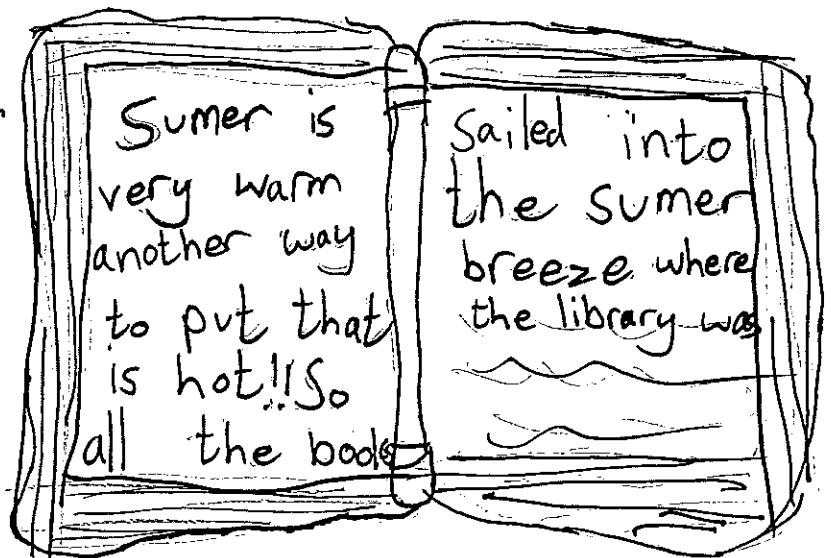 Sumer is
very warm
another way
to put that
is hot!!So
all the books
Sailed into
the sumer
breeze where
the library was